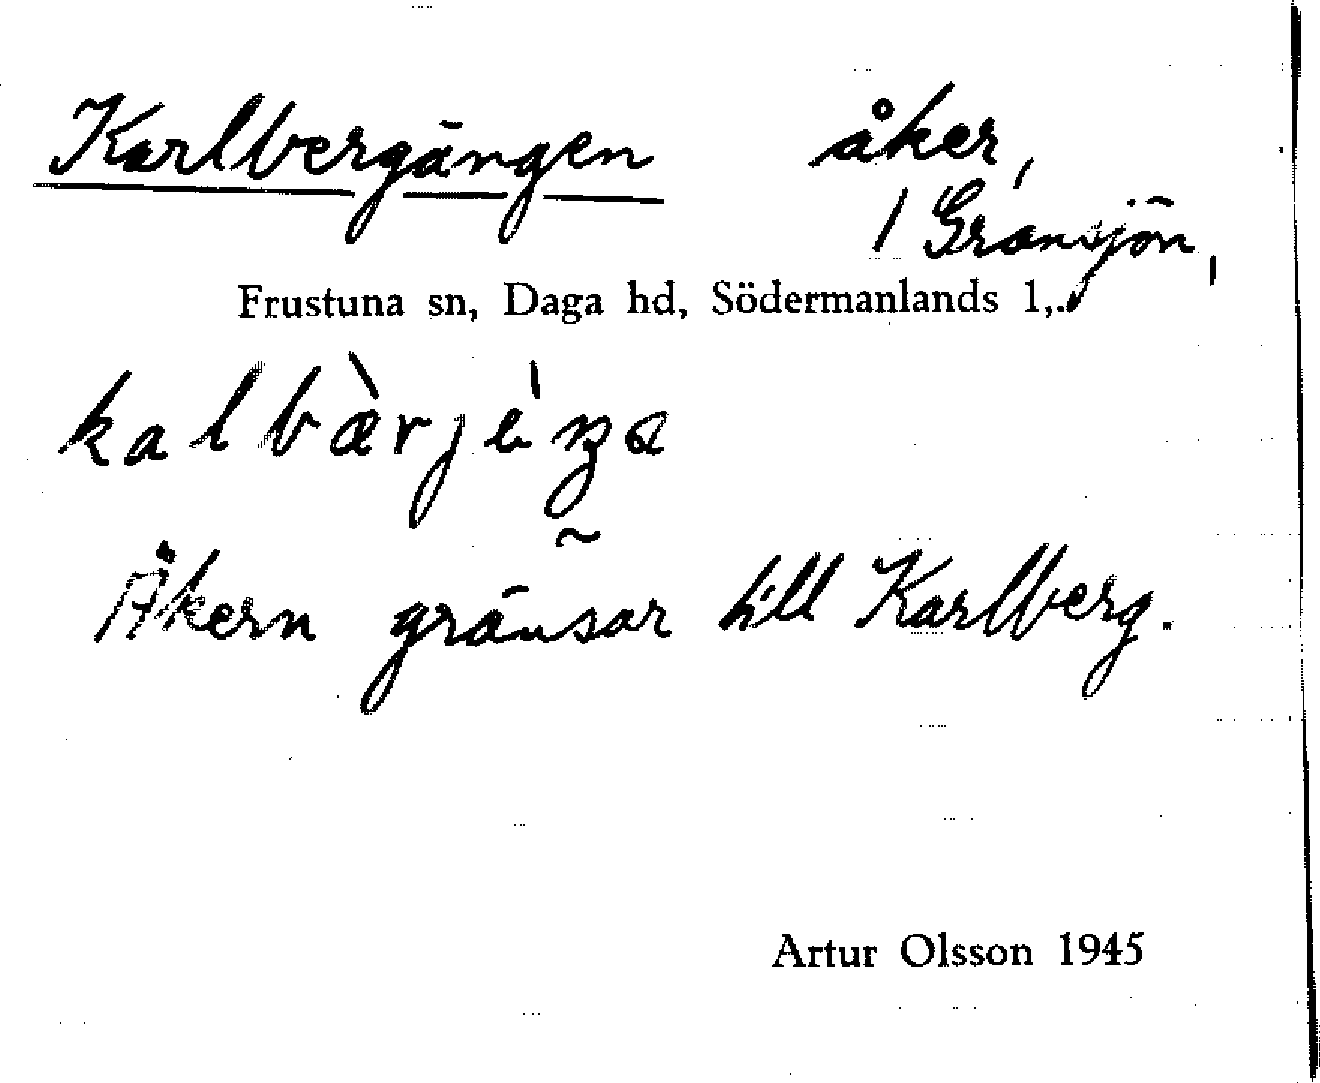 Karlbergängen åker,
1 Gransjön,
Frustuna sn, Daga hd, Södermanlands l,.
Åkern gränsar till Karlberg.
Artur Olsson 1945